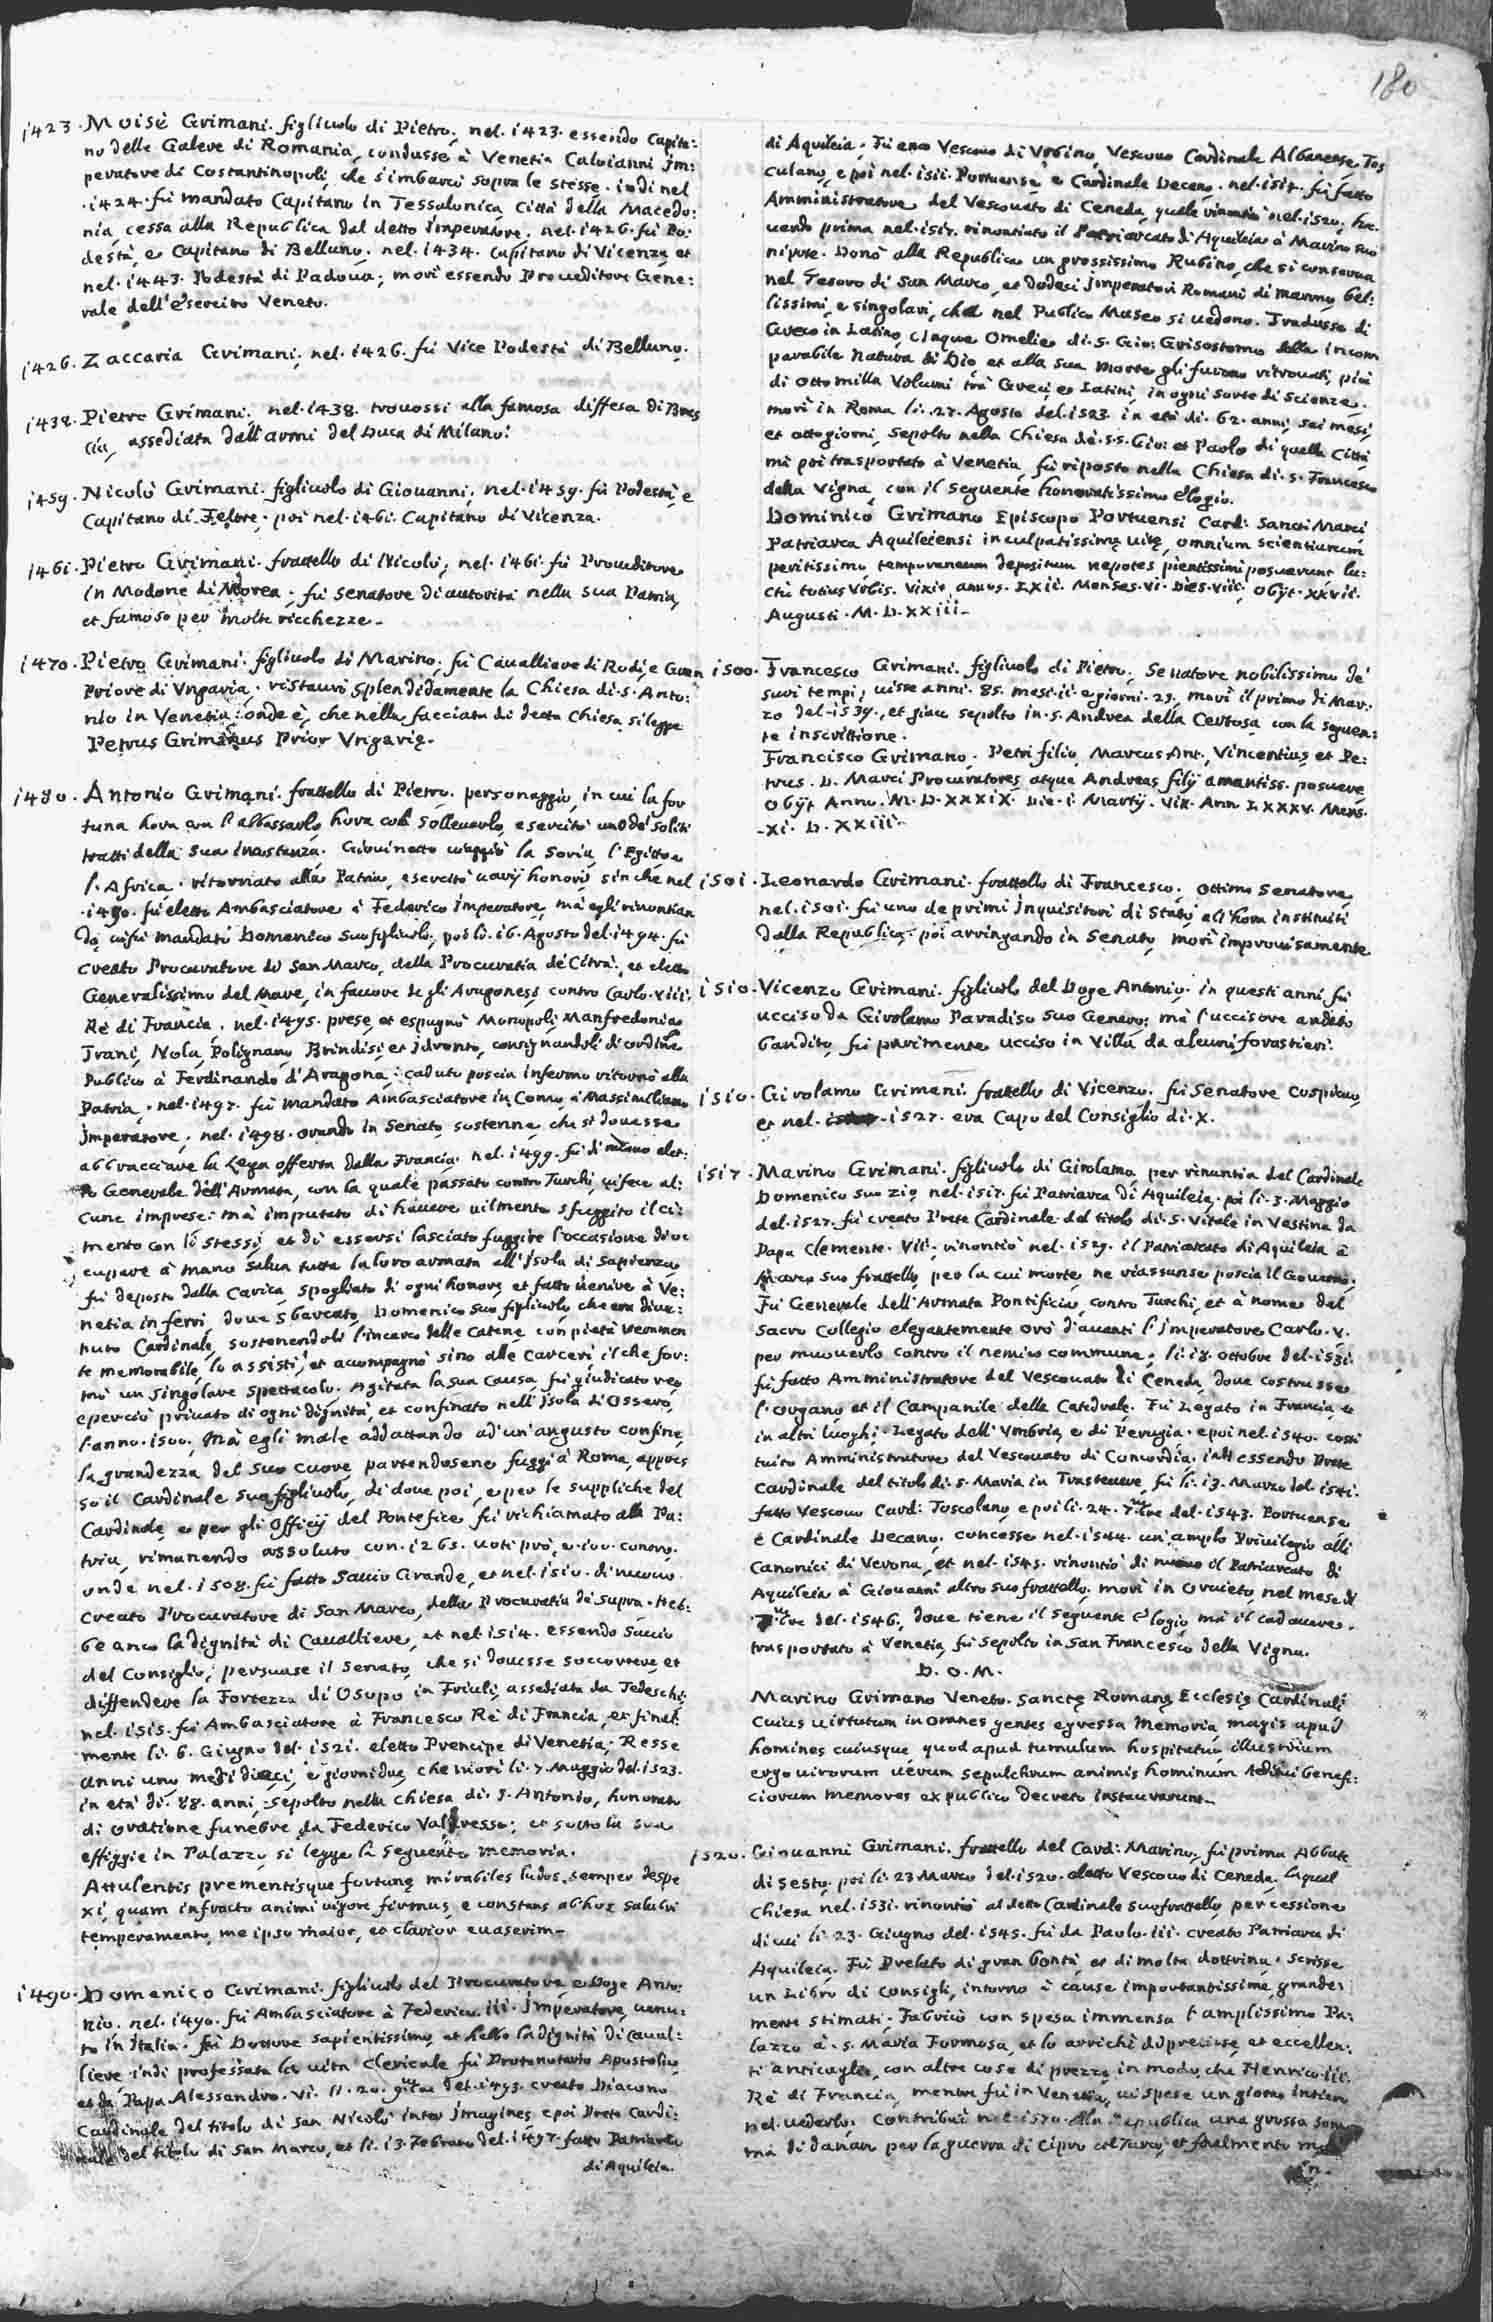 180
1423. Moisè Grimani. figliuolo di Pietro, nel. 1423. essendo Capita:
no delle Galere di Romania, condusse à Venetia Caloianni Im:
peratore di Costantinopoli, che s'imbarcò sopra le stesse. indi nel
.1424. fù mandato Capitano in Tessalonica, Città della Macedo:
nia, cessa alla Republica dal detto Imperatore. nel. 1426. fù Po:
destà, e Capitano di Belluno. nel. 1434. Capitano di Vicenza, et
nel. 1443. Podestà di Padova; morì essendo Proveditore Gene:
rale dell'esercito Veneto.
1426. Zaccaria Grimani, nel. 1426. fù Vice Podestà di Belluno.
1438. Pietro Grimani, nel. 1438. trouossi alla famosa diffesa di Bres
cia, assediata dall'armi del Duca di Milano.
1459. Nicolò Grimani. figliuolo di Giovanni, nel. 1459. fù Podestà, e
Capitano di Feltre. poi nel. 1461. Capitano di Vicenza.
1461. Pietro Grimani. fratello di Nicolò, nel. 1461. fù Proueditore
in Modone di Morea. fù senatore di autorità nella sua Patria,
et famoso per molte ricchezze.
1470. Pietro Grimani. figliuolo di Marino, fù Caualliere di Rodi, e Gran
Priore di Vngaria. ristaurò splendidamente la Chiesa di. S. Anto:
nio in Venetia: onde è, che nella facciata di detta Chiesa, si legge
Petrus Grimanus Prior Vngarię.
1480. Antonio Grimani. fratello di Pietro. personaggio, in cui la for
tuna hora con l'abbassarlo, hora col solleuarlo, esercitò uno de' soliti
tratti della sua incostanza. Giovinetto uiaggiò la Soria, l'Egitto, e
l'Africa. ritornato alla Patria, esercitò uarij honori, sin che nel
.1490. fù eletto Ambasciatore à Federico Imperatore, mà egli rinontian
do, ui fù mandato Domenico suo figliuolo. poi li. 16. Agosto del. 1494. fù
creato Procuratore di San Marco, della Procuratia de Citra. et eletto
Generalissimo del Mare, in fauore de gli Aragonesi contro Carlo. VIII.
Rè di Francia. nel. 1495. prese, et espugnò Monopoli, Manfredonia
Trani, Nola, Polignano, Brindisi, et Idronto, consignandoli di ordine
Publico à Ferdinando d'Aragona. caduto poscia infermo ritornò alla
Patria. nel. 1497. fù mandato Ambasciatore in Como, à Massimiliano
Imperatore. nel. 1498. orando in Senato, sostenne, che si douesse
abbracciare la Lega offerta dalla Francia. nel. 1499. fù di nuouo elet:
to Generale dell'Armata, con la quale passato contro Turchi, ui fece al:
cune imprese: mà imputato di hauere uilmente sfuggito il ci:
mento con li stessi, et di essersi lasciato fuggire l'occasione di oc
cupare à mano salua tutta la loro armata all'Isola di Sapienza
fù deposto dalla Carica, spogliato di ogni honore, et fatto uenire à Ve:
netia in ferri, doue sbarcato, Domenico suo figliuolo, che era diue:
nuto Cardinale, sostenendole l'incarco delle Catene, con pietà veramen
te memorabile, lo assistì, et accompagnò sino alle Carceri, il che for:
mò un singolare spettacolo. Agitata la sua Causa, fù giudicato reo,
e perciò priuato di ogni dignità, et confinato nell'Isola di Ossero,
l'anno. 1500. Mà egli male addattando ad un'angusto confine,
la grandezza del suo cuore, partendosene fuggì à Roma, appres
so il Cardinale suo figliuolo, di doue poi, e per le suppliche del
Cardinale, e per gli Officij del Pontefice fù richiamato alla Pa:
tria, rimanendo assoluto con. 1265. uoti prò, e. 100. contro.
onde nel. 1508. fù fatto Sauio Grande, et nel. 1510. di nuouo
creato Procuratore di San Marco, della Procuratia de Supra. Heb:
be anco la dignità di Caualliere, et nel. 1514. essendo Sauio
del Consiglio, persuase il Senato, che si douesse soccorrere, et
diffendere la Fortezza di Osopo in Friuli, assediata da Tedeschi,
nel. 1515. fù Ambasciatore à Francesco Rè di Francia, et final:
mente li. 6. Giugno del. 1521. eletto Prencipe di Venetia. Resse
anni uno, mesi dieci, e giorni due, che morì li. 7. Maggio del. 1523.
in età di. 88. anni, sepolto nella Chiesa di. S. Antonio, honorato
di oratione funebre da Federico Valaresso; et sotto la sua
effiggie in Palazzo, si legge la seguente memoria.
Attulentis prementisque fortunę mirabiles ludos, semper despe
xi, quam infracto animi uigore firmus, e constans ab hoc salubri
temperamento, me ipso maior, et clarior euaserim.
1490. Domenico Grimani. figliuolo del Procuratore, e Doge Anto:
nio. nel. 1490. fù Ambasciatore à Federico. III. Imperatore, uenu:
to in Italia. fù Dottore sapientissimo, et hebbe la dignità di Caual:
liere. indi professata la uita Clericale fù Protonotario Apostolico,
et da Papa Alessandro. VI. li. 20. 9bre del. 1493. creato Diacono
Cardinale del titolo di San Nicolò inter Imagines, e poi Prete Cardi:
nale del titolo di San Marco, et li. 13. Febraro del. 1497. fatto Patriarca
di Aquileia.
di Aquileia. Fù anco Vescouo di Vrbino, Vescouo Cardinale Albanense, Tos
culano, e poi nel. 1511. Portuense, e Cardinale Decano. nel. 1517. fù fatto
Amministratore del Vescouato di Ceneda, quale rinontiò nel. 1520, ha:
uendo prima nel. 1517. rinontiato il Patriarcato di Aquileia à Marino suo
nipote. Donò alla Republica un grossissimo Rubino, che si conserua
nel Tesoro di San Marco, et dodeci Imperatori Romani di marmo, bel:
lissimi, e singolari, che nel Publico Museo si uedono. Tradusse di
Greco in Latino, cinque Omelie di. S. Gio: Grisostomo della incom
parabile Natura di Dio, et alla sua Morte gli furono ritrouati, più
di otto milla Volumi trà Greci, et Latini, in ogni sorte di Scienze.
morì in Roma li. 27. Agosto del. 1523. in età di. 62. anni, sei mesi,
et otto giorni, sepolto nella Chiesa de. S.S. Gio: et Paolo di quella Città
mà poi trasportato à Venetia, fù riposto nella Chiesa di. S. Francesco
della Vigna, con il seguente honoratissimo elogio.
Dominico Grimano Episcopo Portuensi Card: Sancti Marci
Patriarca Aquileiensi inculpatissimę uitę, omnium scientiarum
peritissimo temporaneum depositum nepotes pientissimi posuerunt lu:
ctu totius Vrbis. Vixit annos. LXII. Menses. VI. Dies. VIII, Obijt. XXVII.
Augusti. M. D. XXIII.
1500. Francesco Grimani. figliuolo di Pietro. Senatore nobilissimo de'
suoi tempi, uisse anni. 85. mesi. 11. e giorni. 23, morì il primo di Mar:
zo del. 1539., et giace sepolto in. S. Andrea della Certosa, con la seguen:
te inscrittione.
Francisco Grimano. Petri filio, Marcus Ant., Vincentius, et Pe:
trus. D. Marci Procuratores, atque Andreas filij amantiss. posuere
Obijt Anno. M. D. XXXIX. Die. I. Martij. Vix. Ann. LXXXV. Mens.
.XI. D. XXIII.
1501. Leonardo Grimani. fratello di Francesco. ottimo Senatore,
nel. 1501. fù uno de primi Inquisitori di Stato, all'hora instituiti
dalla Republica. poi arringando in Senato, morì improuisamente
1510. Vicenzo Grimani. figliuolo del Doge Antonio. in questi anni fù
ucciso da Girolamo Paradiso suo Genero: mà l'uccisore andato
bandito, fù parimente ucciso in Villa da alcuni forastieri.
1510. Girolamo Grimani. fratello di Vicenzo. fù Senatore cospicuo,
et nel. 1527. era Capo del Consiglio di. X.
1517. Marino Grimani. figliuolo di Girolamo, per rinuntia del Cardinale
Domenico suo zio, nel. 1517. fù Patriarca di Aquileia. poi li. 3. Maggio
del. 1527. fù creato Prete Cardinale del titolo di. S. Vitale in Vestina da
Papa Clemente. VII. rinontiò nel. 1529. il Patriarcato di Aquileia à
Marco suo fratello, per la cui morte, ne riassunse poscia il Gouerno.
Fù Generale dell'Armata Pontificia, contro Turchi, et à nome del
Sacro Collegio elegantemente orò d'auanti l'Imperatore Carlo. V.
per muouerlo contro il nemico commune. li. 18. ottobre del. 1531.
fù fatto Amministratore del Vescouato di Ceneda, doue costrusse
l'organo, et il Campanile della Catedrale. Fù Legato in Francia, et
in altri luoghi. Legato dell'Vmbria, e di Perugia. e poi nel. 1540. costi
tuito Amministratore del Vescouato di Concordia. indi essendo Prete
Cardinale del titolo di. S. Maria in Trasteuere, fù li. 13. Marzo del. 1541.
fatto Vescouo Card: Toscolano, e poi li. 24. 7bre del. 1543. Portuense
e Cardinale Decano. concesse nel. 1544. un'amplo Priuilegio alli
Canonici di Verona, et nel. 1545. rinontiò di nuouo il Patriarcato di
Aquileia à Giouanni altro suo fratello. morì in Oruieto, nel mese di
7bre del. 1546, doue tiene il seguente elogio, mà il cadauere.
trasportato à Venetia, fù sepolto in San Francesco della Vigna.
D. O. M.
Marino Grimano Veneto. Sanctę Romanę Ecclesię Cardinali
Cuius uirtutum in omnes gentes egressa memoria, magis apud
homines cuiusque, quod apud tumulum hospitatur, illustrium
ergo uirorum uerum sepulchrum animis hominum benef:
ciorum memores ex publico decreto instaurarunt.
1520. Giouanni Grimani. fratello del Card: Marino, fù prima Abbate
di Sesto, poi li. 23 Marzo del. 1520. eletto Vescouo di Ceneda. la qual
Chiesa nel. 1531. rinontiò al detto Cardinale suo fratello, per cessione
di cui li. 23. Giugno del. 1545. fù da Paolo. III. creato Patriarca di
Aquileia. Fù Prelato di gran bontà, et di molta dottrina. Scrisse
un Libro di Consigli, intorno à cause importantissime, grande:
mente stimati. Fabricò con spesa immensa l'amplissimo Pa:
lazzo à. S. Maria Formosa, et lo arrichì di preciose, et eccellen:
ti anticaglie, con altre cose di prezzo, in modo, che Henrico. III.
Rè di Francia, mentre fù in Venetia, ui spese un giorno intiero
nel uederlo. Contribuì nel. 1570. alla Republica una grossa som
ma di danaro per la guerra di Cipro col Turco, et finalmente